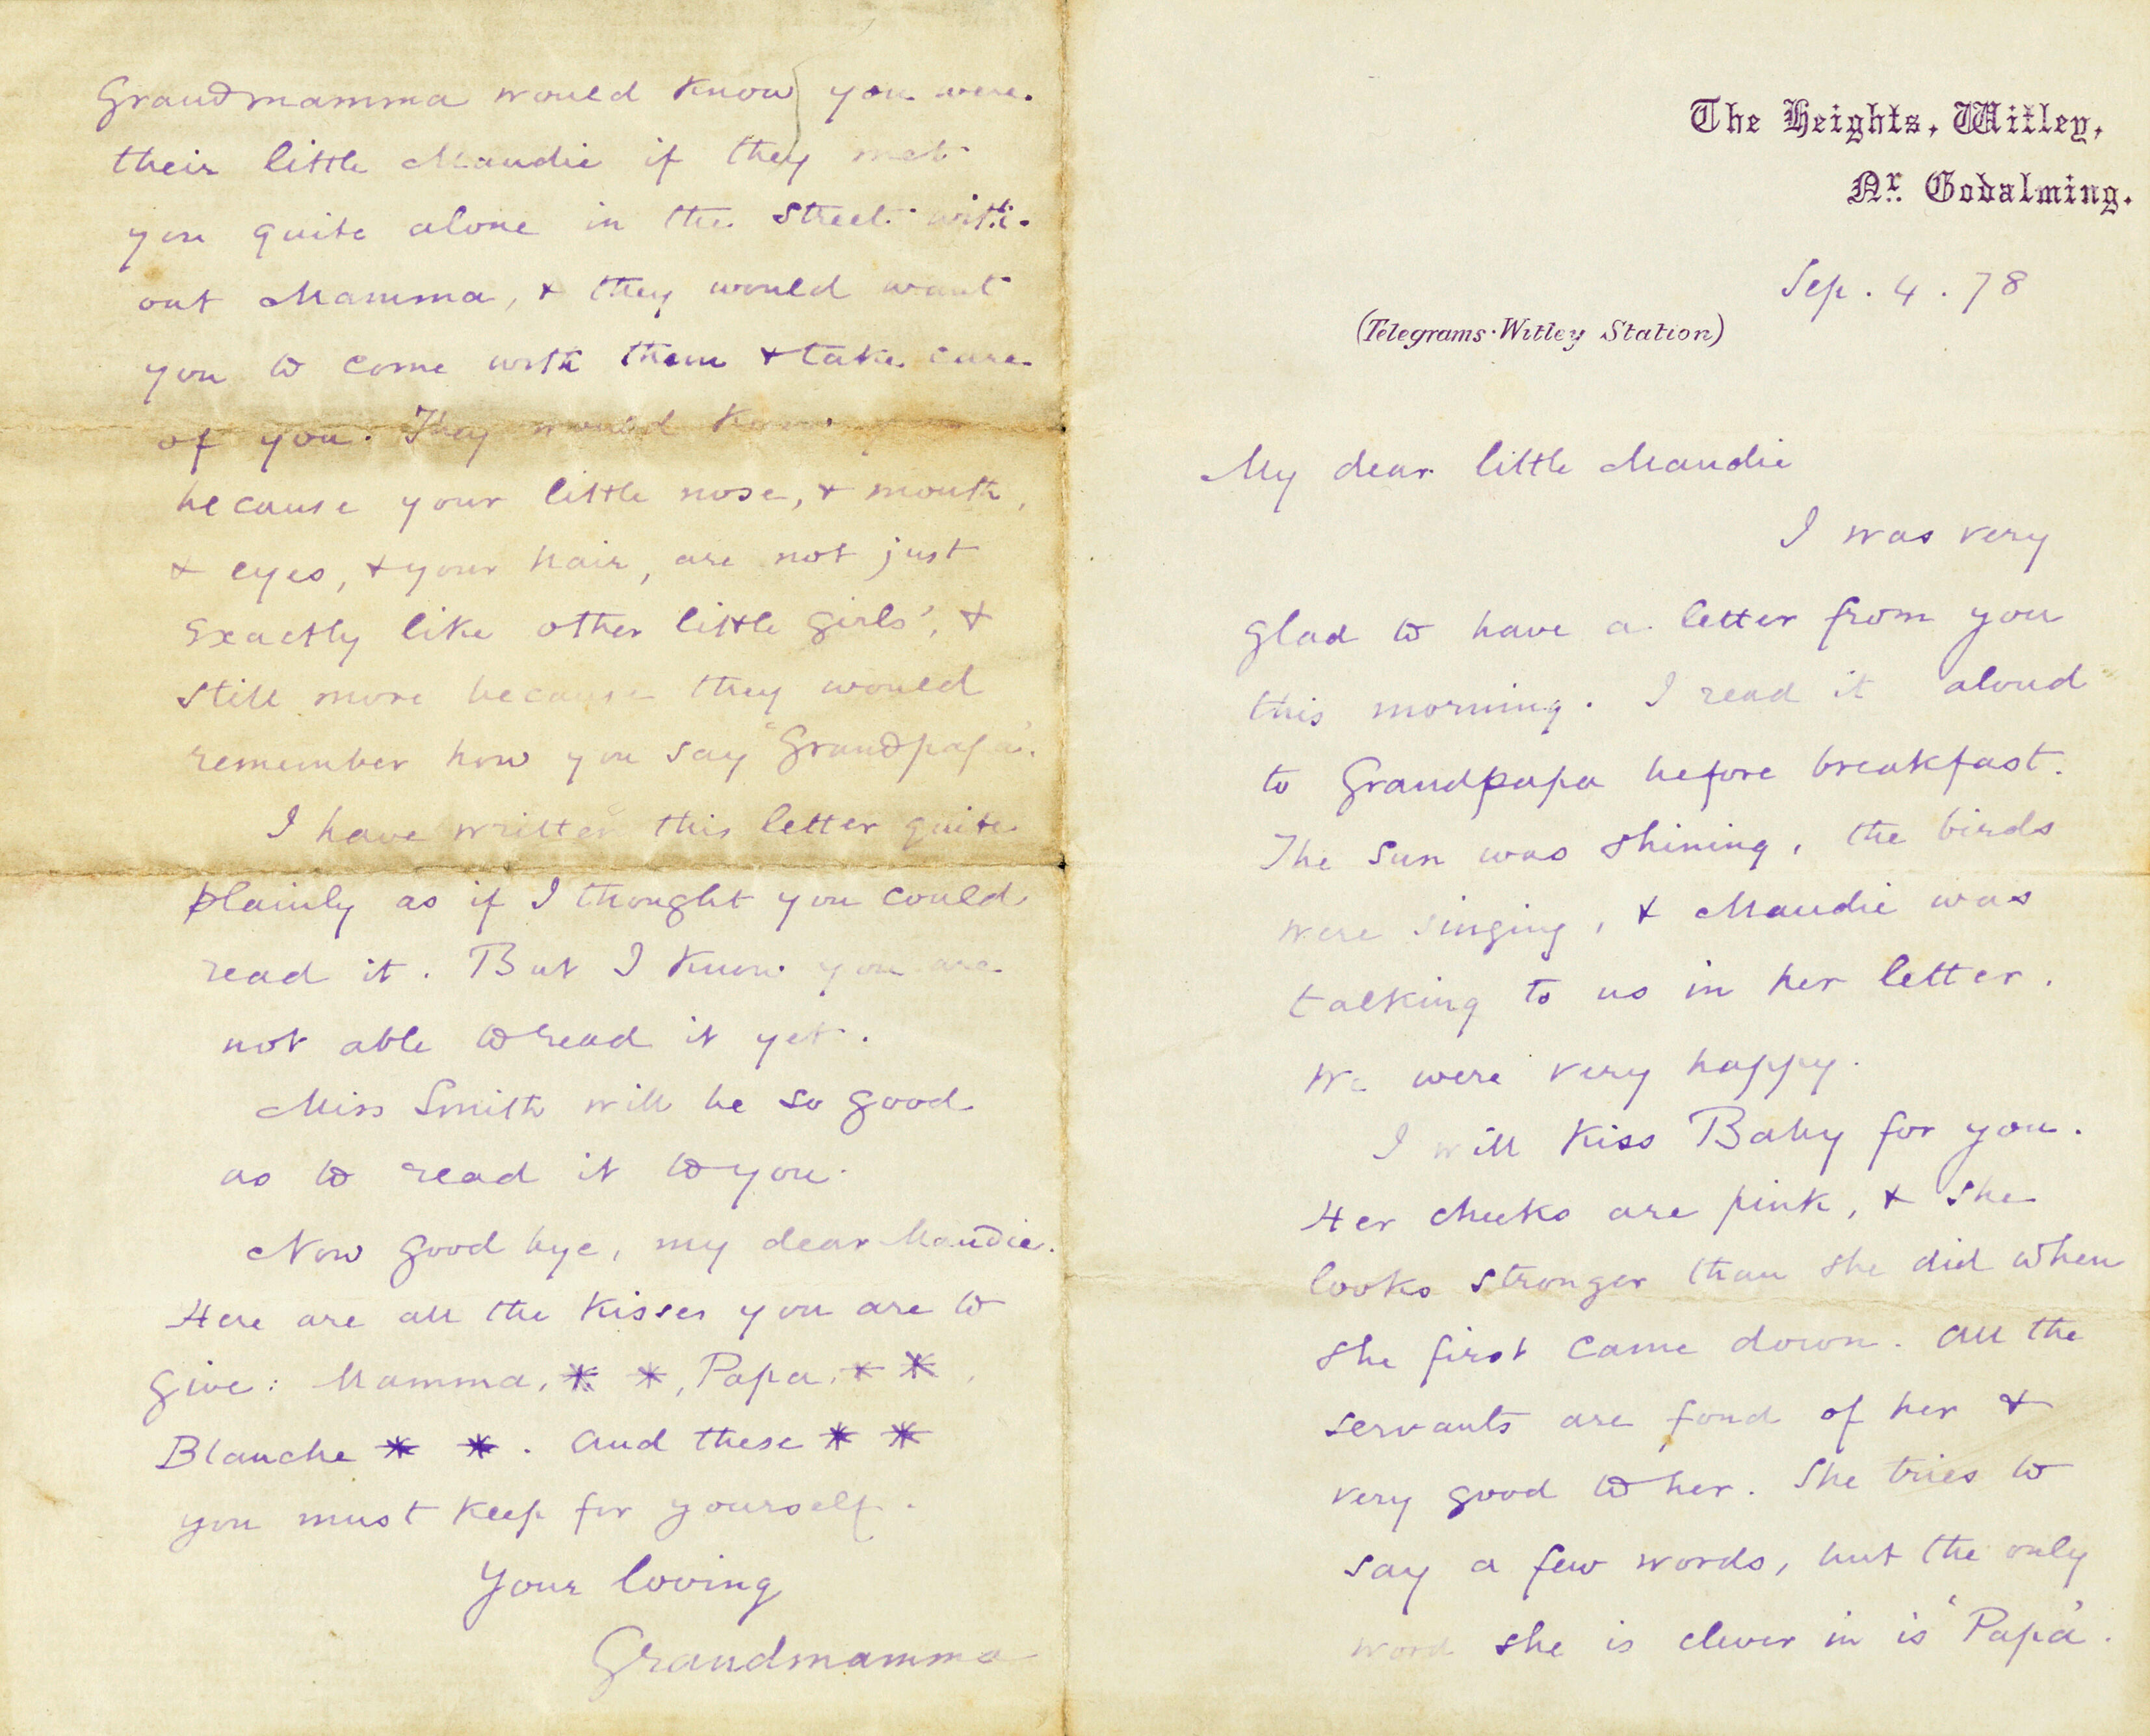 The Heights, Witley,
Nr. Godalming.
Sep. 4. 78
(Telegrams. Witley Station)
My dear little Maudie
I was very
glad to have a letter from you
this morning. I read it aloud
to Grandpapa before breakfast.
The sun was shining, the birds
were singing, & Maudie was
talking to us in her letter.
We were very happy.
I will kiss Baby for you.
Her cheeks are pink, & she
looks stronger than she did when
she first came down. All the
servants are fond of her &
very good to her. She tries to
say a few words, but the only
word she is clever in is 'Papa'.
Grandmamma would know you were
their little Maudie if they met
you quite alone in the street with-
out Mamma, & they would want
you to come with them & take care
of you. They would know you
because your little nose, & mouth,
& eyes, & your hair, are not just
exactly like other little girls', &
still more because they would
remember how you say "Grandpapa".
I have written this letter quite
plainly as if I thought you could
read it. But I know you are
not able to read it yet.
Miss Smith will be so good
as to read it to you.
Now good bye, my dear Maudie.
Here are all the kisses you are to
give: Mamma, * *, Papa, * *,
Blanche * *. And these * *
you must keep for yourself.
Your loving
Grandmamma